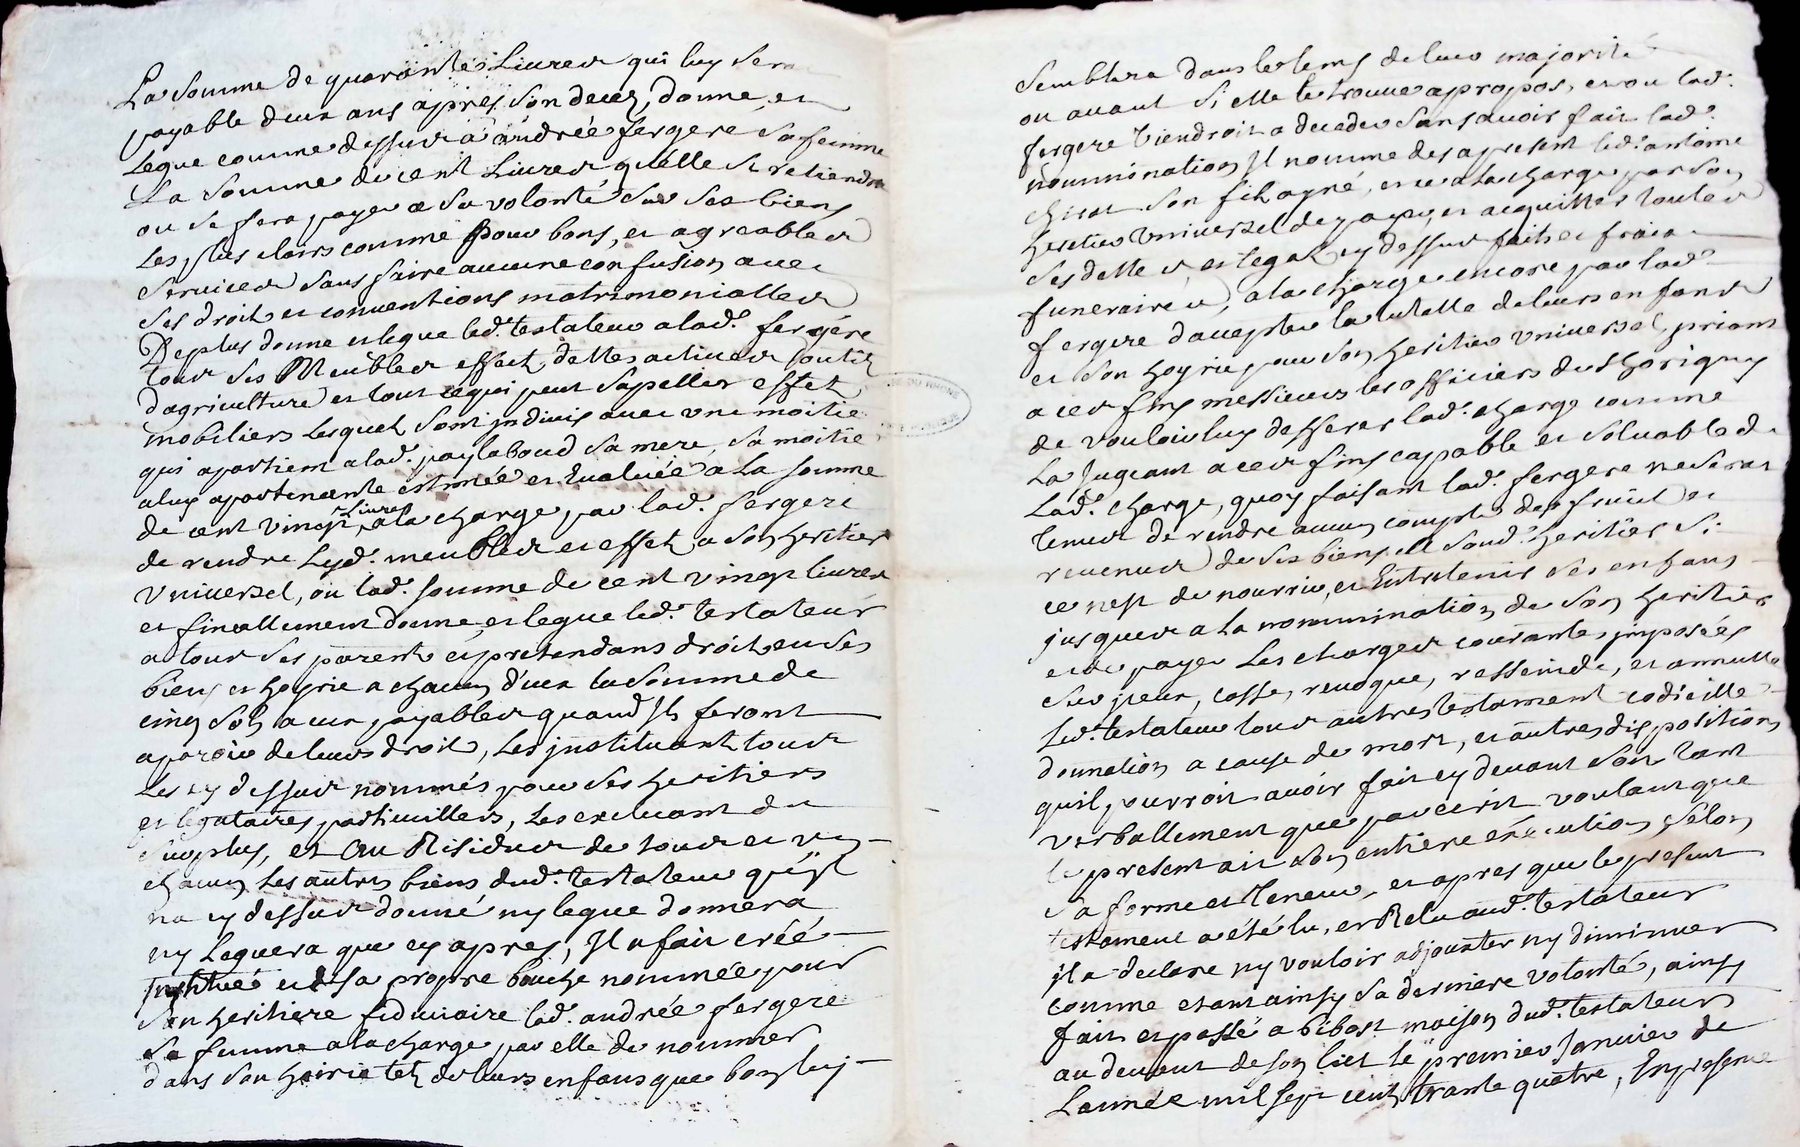 La somme de quarante Livres qui luy sera
payable deux ans apres son deces, donne et
legue comme dessus a andrée fergere sa femme
La somme de cent Livres quelle se retiendra
ou se fera payer a sa volonté sur ses biens
Les plus clairs comme pour bons, et agreables
services sans faire aucune confusion avec
ses droits et conventions matrimonialles
De plus donne et legue led. testateur a lad. fergere
tous ses Meubles effects dettes actives outils
dagriculture et tout ce qui peut sapeller effets
mobiliers lesquels sont jndivis avec une moitié
qui apartient a lad. paylaboud sa mere, sa moitié
a luy apartenante estimée et Evaluée a La somme
de cent vingt livres, a la charge par lad. fergere
de rendre Lesd. meubles et effets a son heritier
Vniversel, ou lad. somme de cent vingt livres
et finallement donne, et legue led. testateur
a tous ses parents et pretendans droits en ses
biens et hoyrie a chacun d'eux la somme de
cinq sols a eux payables quand Jls feront
aparoir de leurs droits, Les jnstituant tous
Les cy dessus nommés pour ses heritiers
et legataires particulliers, Les excluant du
surplus, et Au Residus de tous et vn
chacun Les autres biens dud. testateur qu'jl
na cy dessus donné ny legue donnera
ny Leguera que cy apres, Jl a fait créé
Jnstitué et de sa propre bouche nommée pour
son heritiere fiduciaire lad. andrée fergere
sa femme a la charge par elle de nommer
dans son hoirie tel de leurs enfans que bon luy
semblera dans le tems de leur majorité
ou avant si elle le trouve apropos, et ou lad.
fergere viendroit a deceder sans avoir fait lad.
nommination Jl nomme des apresent led. antoine
son fils ayné, et ce a la charge par son
heritier Vniversel de payer, et acquitter toutes
ses dettes et legats cy dessus faits et frais
funeraires, a la charge encore par lad.
fergere daccepter la tutelle de leurs enfans
et son hoyrie pour son heritier vniversel, priant
a ces fins messieurs les officiers de Thorigny
de vouloir luy defferer lad. charge comme
La Jugeant a ces fins capable et solvable de
Lad. charge, quoy faisant lad. fergere ne serat
tenue de rendre aucun compte des fruits et
revenus de ses biens a sond. heritier si
ce nest de nourrir, et Entretenir ses enfans
jusques a la nommination de son heritier
et de payer Les charges courantes jmposées
sur jceux, casse, revoque, resseinde, et annulle
Led. testateur tous autres testament codicille
donnation a cause de mort, et autres dispositions
quil pourroit avoir fait cy devant soit tant
verballement que par ecrit voulant que
le present ait son entiere execution selon
sa forme et teneur, et apres que le present
testament a été lu, et Relu aud. testateur
jl a declaré ny vouloir adjouter ny diminuer
comme etant ainsy sa derniere volonté, ainsy
fait et passé a Bibost maison dud. testateur
au devant de son lict le premier Janvier de
Lannée mil sept cents trante quatre, En presence